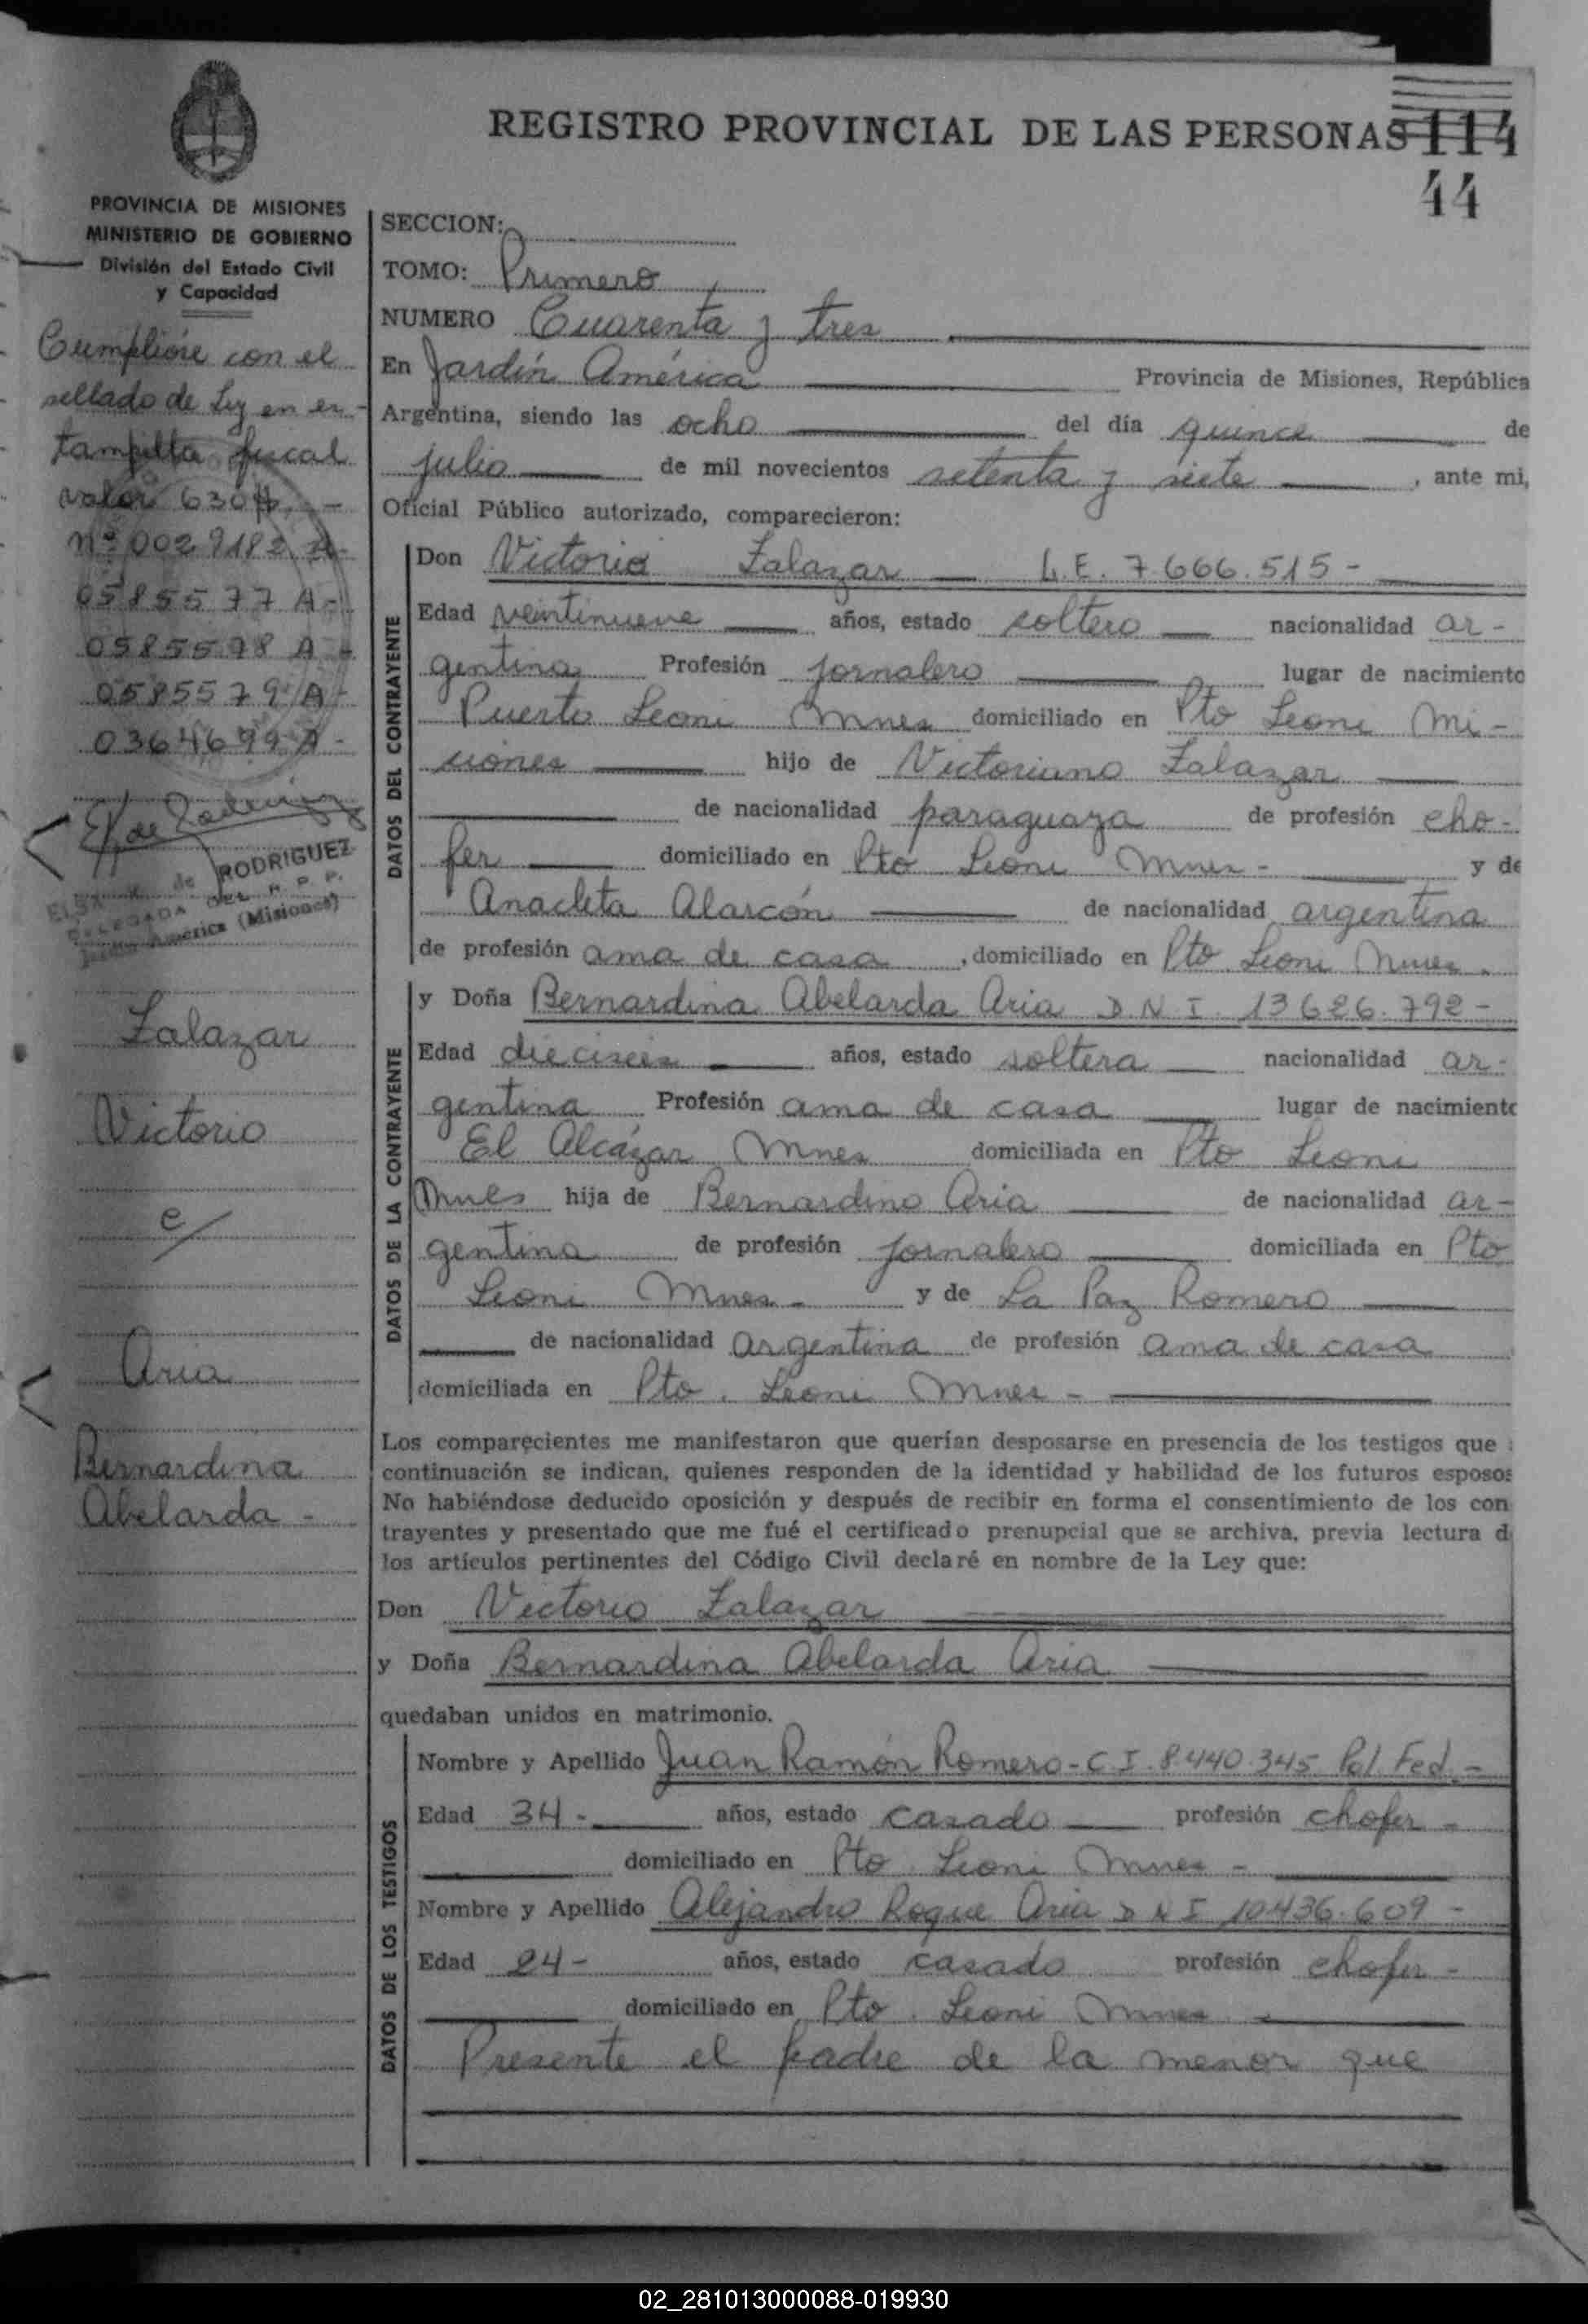 REGISTRO PROVINCIAL DE LAS PERSONAS 114
44
PROVINCIA DE MISIONES
MINISTERIO DE GOBIERNO
División del Estado Civil
y Capacidad
Cumplióse con el
sellado de Ley en es-
tampilla fiscal
valor 630 $ -
nº 0029182 A-
0585577 A-
0585578 A-
0585579 A-
0364699 A-
RODRIGUEZ
DELEGADA DEL R. P. P.
Jardín América (Misiones)
Zalazar
Victorio
c/
Aria
Bernardina
Abelarda -
SECCION:
TOMO: Primero
NUMERO Cuarenta y tres
En Jardín América Provincia de Misiones, República
Argentina, siendo las ocho del día quince de
julio de mil novecientos setenta y siete , ante mi,
Oficial Público autorizado, comparecieron:
DATOS DEL CONTRAYENTE
Don Victorio Zalazar L.E. 7.666.515 -
Edad veintinueve años, estado soltero nacionalidad ar-
gentina Profesión jornalero lugar de nacimiento
Puerto Leoni Mnes domiciliado en Pto Leoni Mi-
siones hijo de Victoriano Zalazar
de nacionalidad paraguaya de profesión cho-
fer domiciliado en Pto Leoni Mnes - y de
Anacleta Alarcón de nacionalidad argentina
de profesión ama de casa , domiciliado en Pto Leoni Mnes.
DATOS DE LA CONTRAYENTE
y Doña Bernardina Abelarda Aria D.N.I. 13.626.792 -
Edad dieciseis años, estado soltera nacionalidad ar-
gentina Profesión ama de casa lugar de nacimiento
El Alcázar Mnes domiciliada en Pto Leoni
Mnes hija de Bernardino Aria de nacionalidad ar-
gentina de profesión jornalero domiciliada en Pto
Leoni Mnes - y de La Paz Romero
de nacionalidad argentina de profesión ama de casa
domiciliada en Pto. Leoni Mnes -
Los comparecientes me manifestaron que querían desposarse en presencia de los testigos que
continuación se indican, quienes responden de la identidad y habilidad de los futuros esposos
No habiéndose deducido oposición y después de recibir en forma el consentimiento de los con
trayentes y presentado que me fué el certificado prenupcial que se archiva, previa lectura d
los artículos pertinentes del Código Civil declaré en nombre de la Ley que:
Don Victorio Zalazar
y Doña Bernardina Abelarda Aria
quedaban unidos en matrimonio.
DATOS DE LOS TESTIGOS
Nombre y Apellido Juan Ramón Romero - C.I. 8.440.345 Pol. Fed. -
Edad 34 - años, estado casado profesión chofer -
domiciliado en Pto. Leoni Mnes -
Nombre y Apellido Alejandro Roque Aria D N I 10.436.609 -
Edad 24 - años, estado casado profesión chofer -
domiciliado en Pto. Leoni Mnes.
Presente el padre de la menor que
02_281013000088-019930